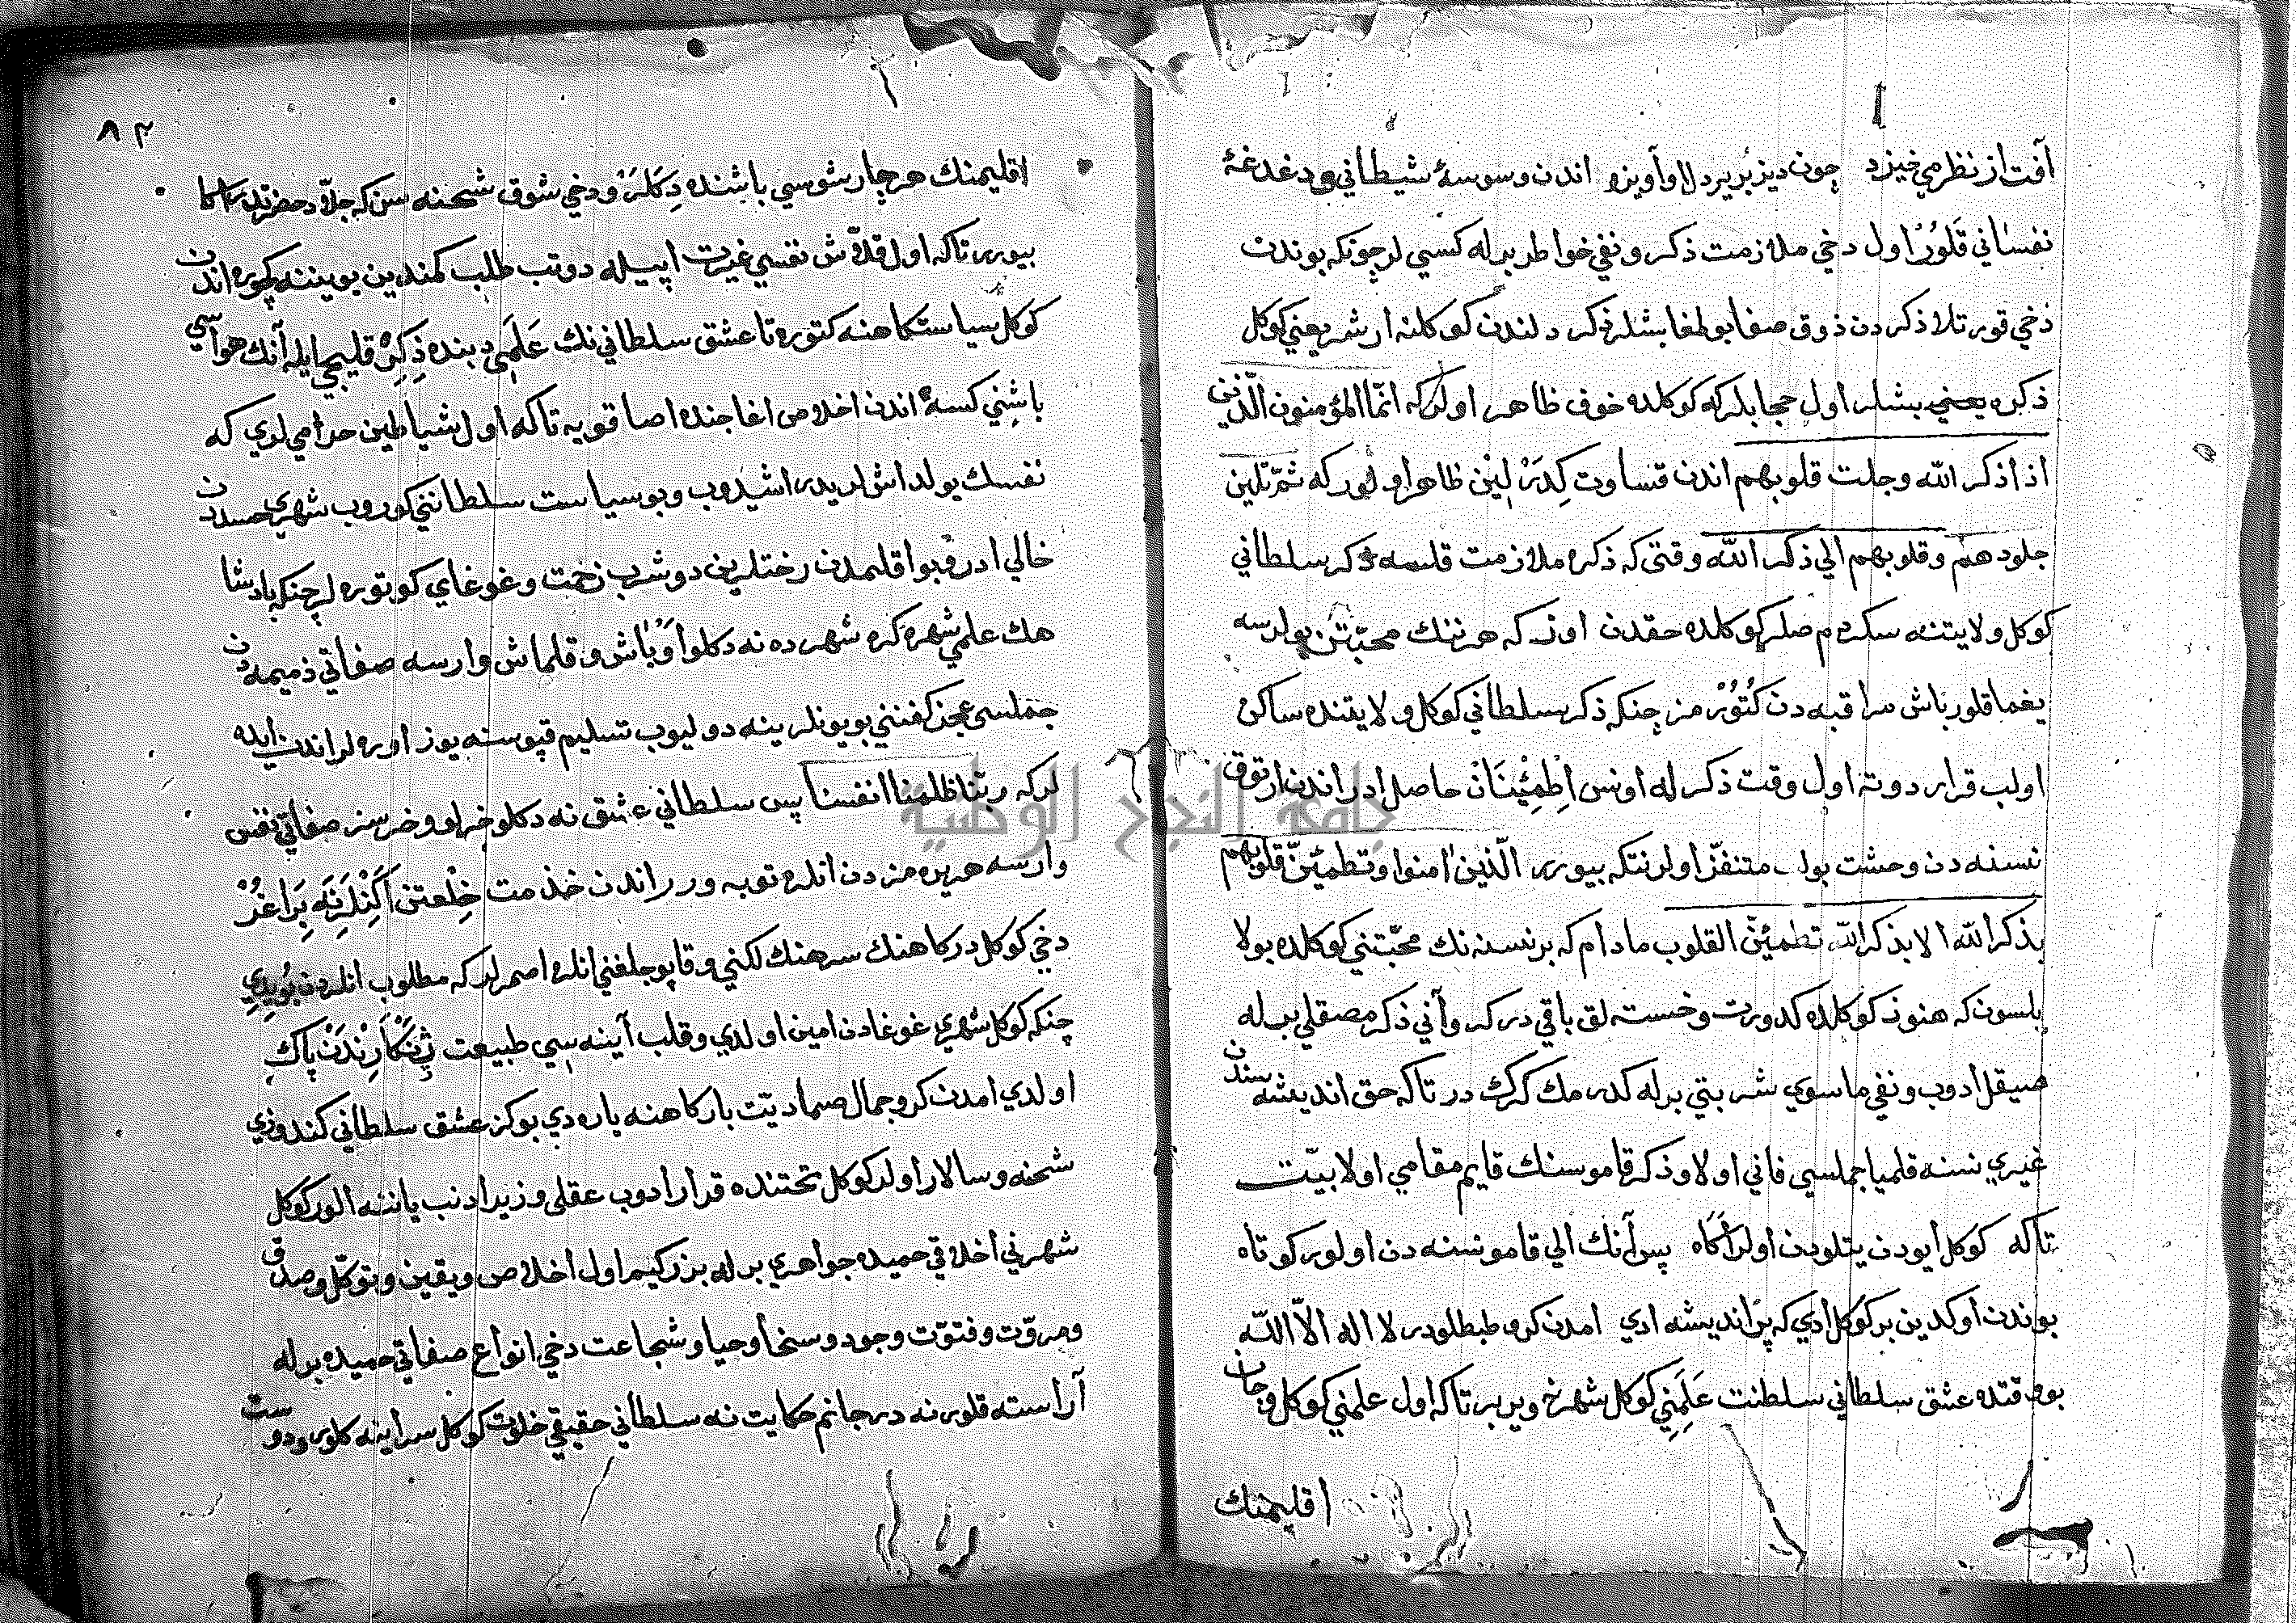 آفت از نظر می خیزد چون دیز بزیرد لاو آویزد اندن وسوسۀ شیطانی و دغدغۀ
نفسانی قَلُوُرْ اول دخي ملازمت ذکر و نفي خواطر برله کسیي لر چونکه بوندن
ذخي قورتلا ذکر دن ذوق صفا بولمغا بشلر ذکر دلندن کوکلنه ارشر یعني کوکل
ذکره یعني بشلر اول حجابلرکه کوکلده خوف ظاهر اولرکه انّما المؤمنون الّذین
اذا ذکر الله وجلت قلوبهم اندن قساوت کِدَرْ لِیْن ظاهر اولور که ثمّ تلین
جلودهم و قلوبهم الي ذکر الله وقتی که ذکره ملازمت قلسه ذکر سلطاني
کوکل ولایتنه سکردم صلر کوکلده حقدن اوز که هر ننك محبّتن بولرسه
یغما قلور باش مراقبه دن کُتُوُرْمز چنکه ذکر سلطاني کوکل ولایتنده ساکن
اولب قرار دوته اول وقت ذکر له اونس اِطْمِئْنَانْ حاصل ادر اندن ارتوق
نسنه دن وحشت بولب متنفّر اولر نتکه بیورر الّذین امنوا و تطمئنّ قلوبهم
بذکر الله الا بذکر الله تطمئنّ القلوب مادام که بر نسنه نك محبّتني کوکلده بولا
بلسون که هنوز کوکلده کدورت و خسته لق باقي در کرو آني ذکر مصقلي برله
صیقل ادوب و نفي ماسوي شربتي برله کدرمك کرك در تاکه حق اندیشه سندن
غیري نسنه قلمیا جملسي فاني اولا و ذکر قاموسنك قایم مقامي اولا بیّت
تاکه کوکل ایودن یتلودن اولر آکاه پس آنك الي قامو نسنه دن اولور کوتاه
بوندن اوکدین بر کوکل ادي که پر اندیشه ادي امدن کرو طبطلودر لا اله الاّ الله
بو وقتده عشق سلطاني سلطنت عَلَمِنِي کوکل شهرنه ویربر تاکه اول علمني کوکل و جان
اقلیمنك
۸۲
اقلیمنك هر چار سوسي باشنده دِکَلَرْ و دخي شوق شحنه سن که جلّاد حضرتدر
بیورر تاکه اول قلاّش نفسي غیرت اپیله دوتب طلب کمندین بویننه اندن
کوکل سیاستکاهنه کتوره تا عشق سلطاني نك عَلَمِی دبنده ذِکِرْ قلیجي ایله آنك هواسي
باشني کسه اندن اخلاص اغاجنده اصا قویه تاکه اول شیاطین حرامي لري که
نفسك یولداش لریدر اشیدوب و بو سیاست سلطانني کوروب شهري حسدن
خالي ادرو بو اقلیمدن رختلرین دوشرب زحمت و غوغای کوتوره لر چنکه پادشا
هك علمي شهره کره شهرده نه دکلو اَوْبَاش و قلماش وارسه صفاتي ذمیمه دن
جملسی عجز کفنني بویونلرینه دولیوب تسلیم قپوسنه یوز اوره لر اندن
لرکه ربّنا ظلمنا انفسنا پس سلطاني عشق نه دکلو خرلو و خرسز صفاتي نفس
وارسه هر بره مز دن انلره توبه ویرر اندن خذمت خِلْعتن اَکِنْلَرِنَه بِرَاغُرْ
دخي کوکل درکاهنك سرهنك لکني و قاپوجلغني انلره اصمرلرکه مطلوب انلردن
چنکه کوکل شهري غوغادن امین اولدي و قلب آینه سي طبیعت ژِنْکَارِنْدَنْ پاك
اولدي امدن کرو جمال صمادیّت بارکاهنه یاره دي بوکز عشق سلطاني کندوزي
شحنه و سالار اولر کوکل تختنده قرار ادوب عقلي وزیر ادنب یاننه الور کوکل
شهرني اخلاقي حمیده جواهري برله بزر کیم اول اخلاص و یقین و توکّل و صدق
و مروّت و فتوّت و جود و سخا و حیا و شجاعت دخي انواع صفاتي حمیده برله
آراسته قلور نه در جانم حکایت نه سلطاني حقیقي خلوت کوکل سراینه کلور و دوست